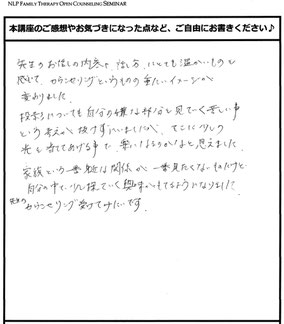 NLP FAMILY THERAPY OPEN COUNSELING SEMINAR
本講座のご感想やお気づきになった点など、ご自由にお書きください♪
先生のお話しの内容も、話し方、とても温かいものと
感じて、カウンセリングというものの重たいイメージが
変わりました。
投影についても自分の嫌な部分を見ていく苦しい事
という考えが抜けずにいましたが、そこに少しの
光を当てあげる事で楽になるのかなと思えました。
家族という一番身近な関係が一番見たくないものだけど
自分の中で少し探っていく興味がもてるようになりました。
先生のカウンセリング受けてみたいです。